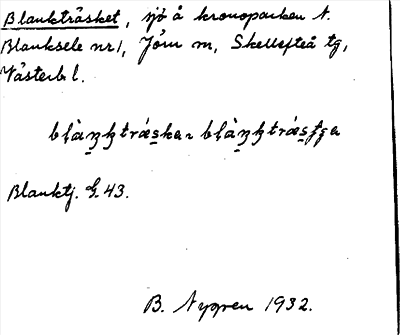 Blankträsket, sjö å kronoparken N.
Blanksele nr 1, Jörn sn, Skellefteå tg,
Västerb l.
Blanktj. G. 43.
B. Nygren 1932.